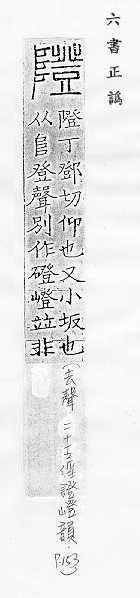 六書正譌
隥
隥丁鄧切仰也又小坂也
从𨸏登聲別作磴嶝竝非
(去聲 二十五徑證嶝韻.
P.153)